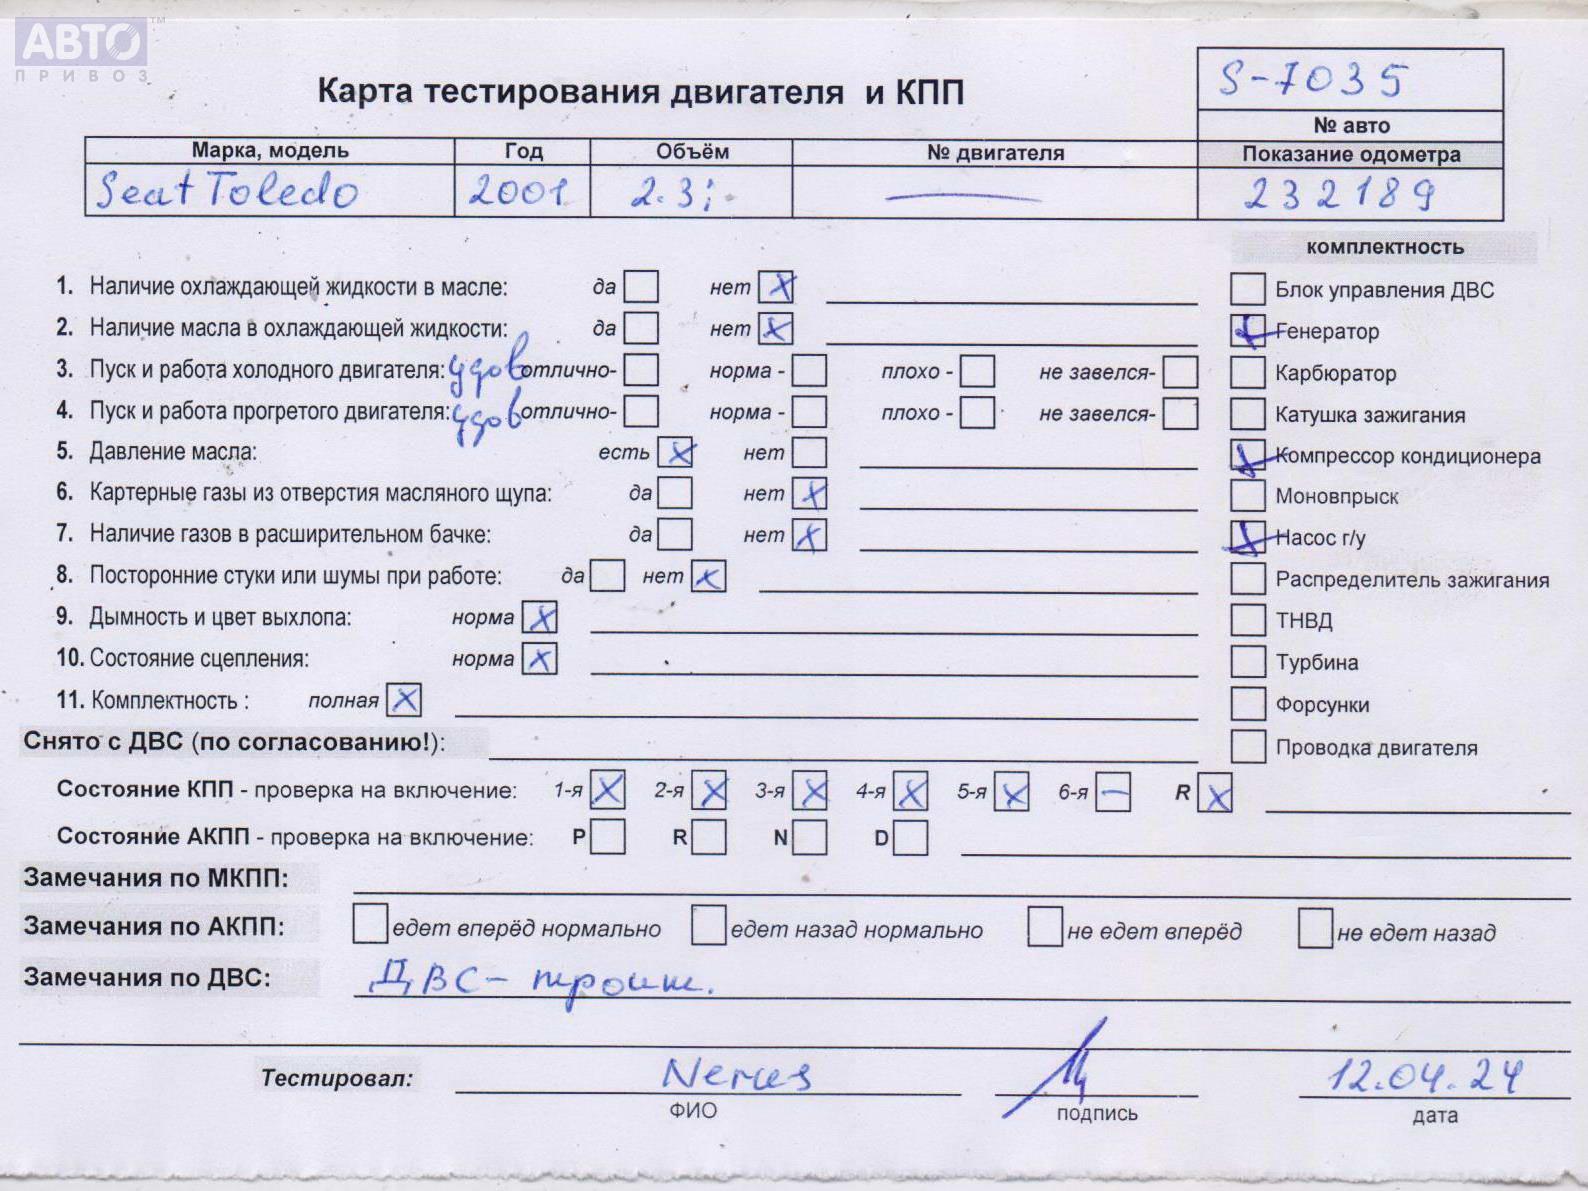 АВТО™
ПРИВОЗ
Карта тестирования двигателя и КПП
S-7035
№ авто
Марка, модель Год Объём № двигателя Показание одометра
Seat Toledo 2001 2.3i — 232189
комплектность
1. Наличие охлаждающей жидкости в масле: да нет X
Блок управления ДВС
2. Наличие масла в охлаждающей жидкости: да нет X
X Генератор
3. Пуск и работа холодного двигателя: удов отлично- норма - плохо - не завелся-
Карбюратор
4. Пуск и работа прогретого двигателя: удов отлично- норма - плохо - не завелся-
Катушка зажигания
5. Давление масла: есть X нет
X Компрессор кондиционера
6. Картерные газы из отверстия масляного щупа: да нет X
Моновпрыск
7. Наличие газов в расширительном бачке: да нет X
X Насос г/у
8. Посторонние стуки или шумы при работе: да нет X
Распределитель зажигания
9. Дымность и цвет выхлопа: норма X
ТНВД
10. Состояние сцепления: норма X
Турбина
11. Комплектность : полная X
Форсунки
Снято с ДВС (по согласованию!):
Проводка двигателя
Состояние КПП - проверка на включение: 1-я X 2-я X 3-я X 4-я X 5-я X 6-я — R X
Состояние АКПП - проверка на включение: P R N D
Замечания по МКПП:
Замечания по АКПП: едет вперёд нормально едет назад нормально не едет вперёд не едет назад
Замечания по ДВС: ДВС - троит.
Тестировал: 12.04.24
ФИО подпись дата